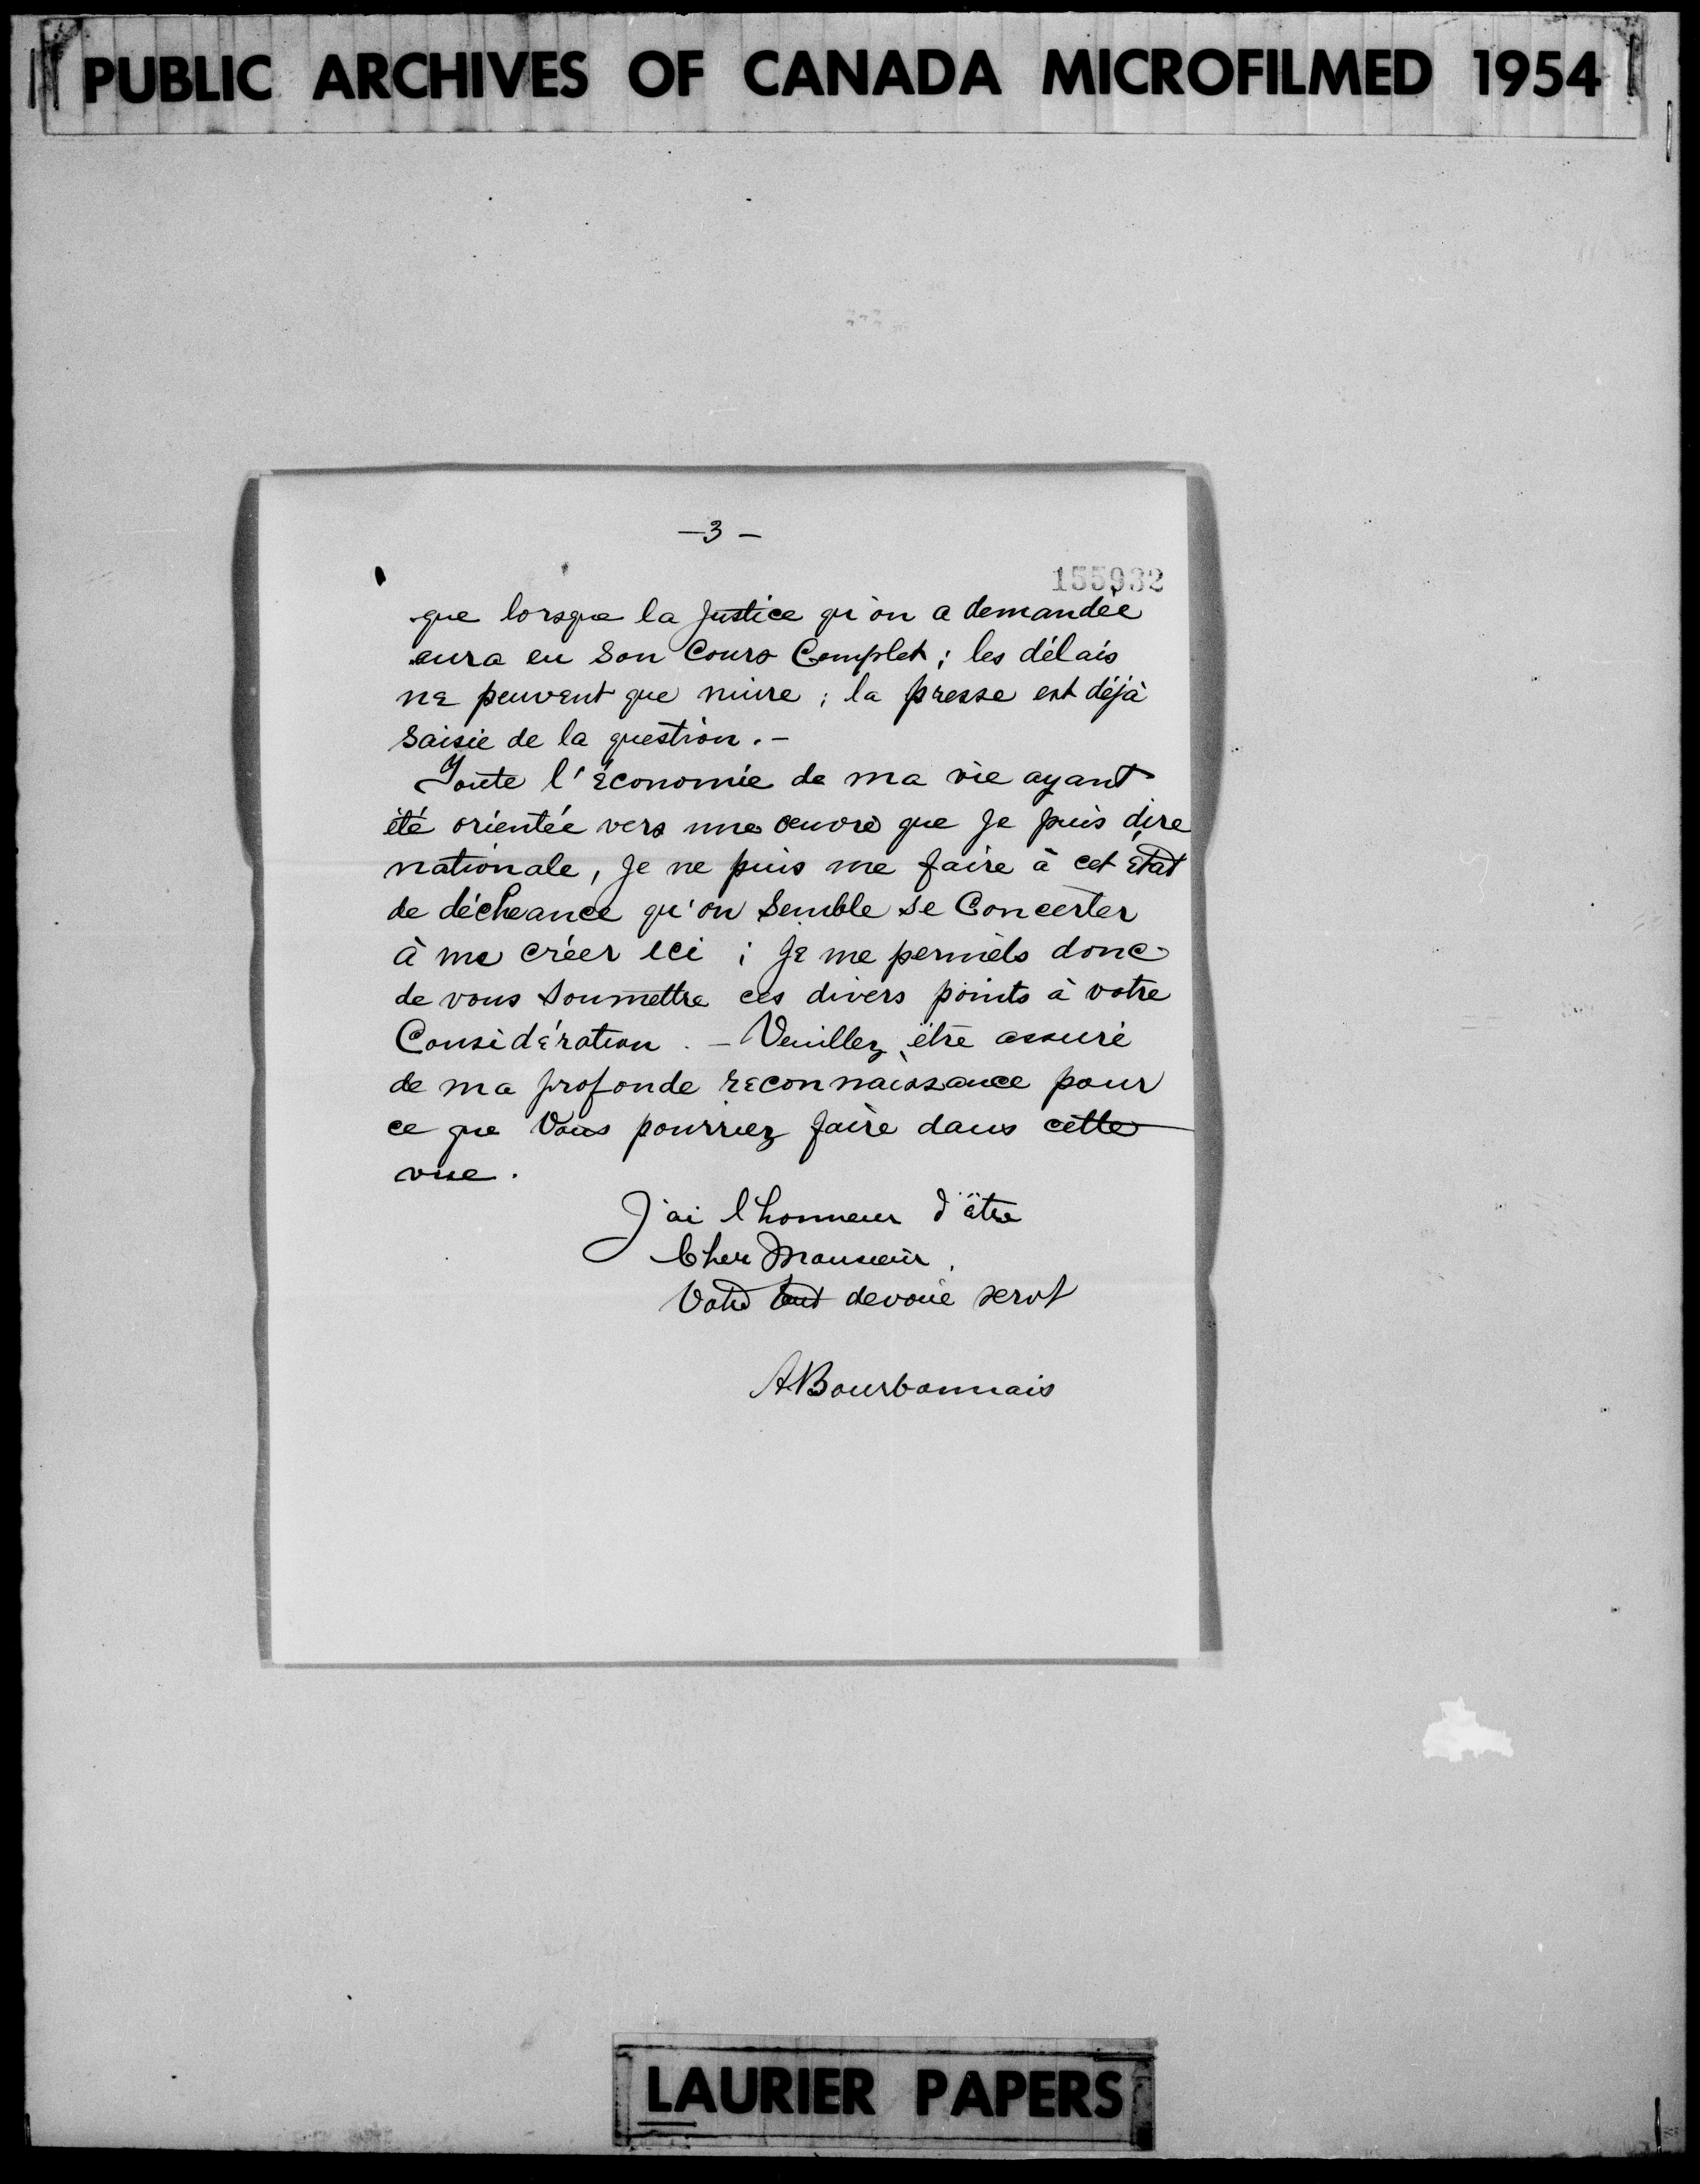 PUBLIC ARCHIVES OF CANADA MICROFILMED 1954
-3-
155932
que lorsque la Justice qu'on a demandée
aura eu son Cours Complet ; les délais
ne peuvent que nuire ; la presse est déjà
saisie de la question. -
Toute l'économie de ma vie ayant
été orientée vers une œuvre que Je puis dire
nationale, Je ne puis me faire à cet état
de déchéance qu'on semble se Concerter
à me créer ici ; Je me permets donc
de vous soumettre ces divers points à votre
Considération. - Veuillez être assuré
de ma profonde reconnaissance pour
ce que Vous pourriez faire dans cette
vue.
J'ai l'honneur d'être
Cher Monsieur,
Votre tout dévoué servt
ABourbonnais
LAURIER PAPERS